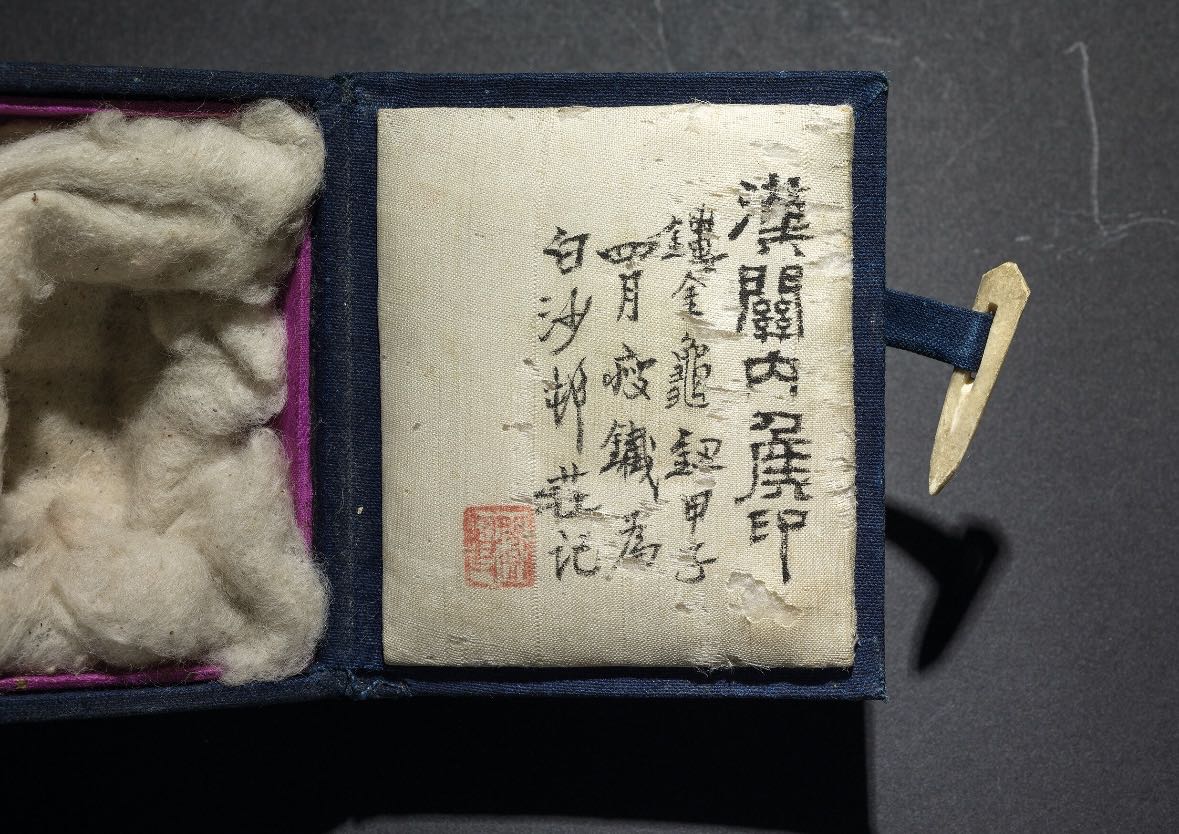 漢關內矦印
鏤金龜鈕甲子
四月瘦鐵為
白沙邨莊记